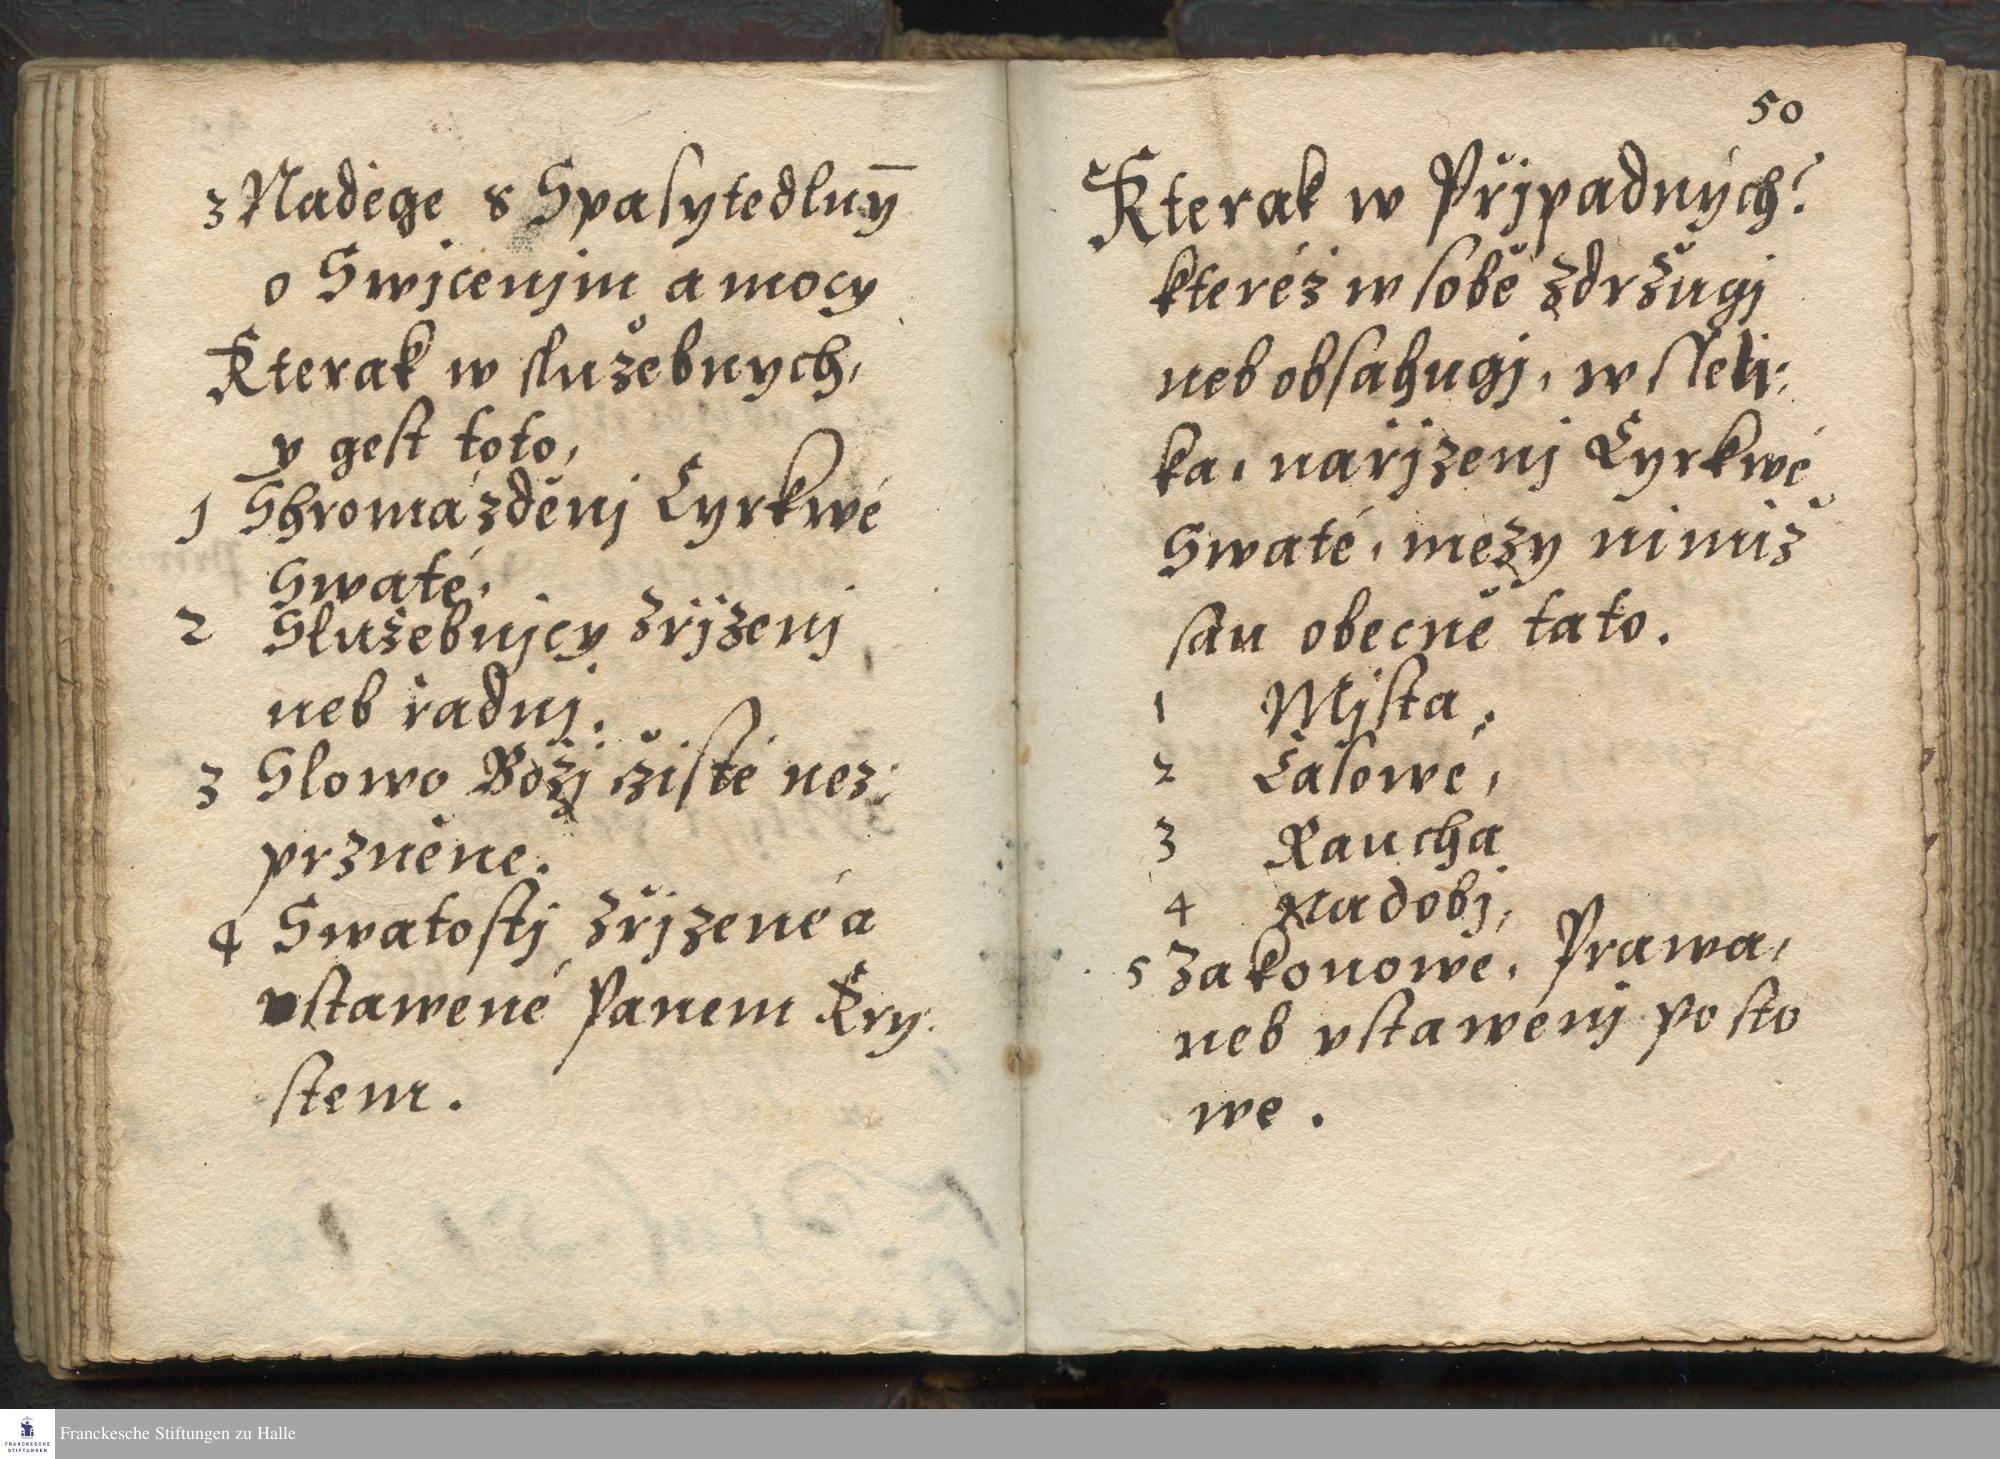 3 Naděge s Spasytedlnȳ
o Swjcenjm a mocy
Kterak w služebnych,
y gest toto,
1 Shromáżděnj Cyrkwé
Swaté,
2 Služebnjcy zřjzenj
neb řadnj.
3 Slowo Božj cžisté nez:
przněne.
4 Swatostj zřjzené a
vstawené Panem Kry:
stem.
50
Kterak w Přjpadných?
kteréż w sobě zdržugj
neb obsahugj, w sseli:
ka, nařjzenj Cyrkwé
Swaté, mezy nimiž
sau obecně tato.
1 Mjsta,
2 Časowé,
3 Raucha
4 Nadobj,
5 Zakonowé, Prawa,
neb vstawenj posto
we.
Franckesche Stiftungen zu Halle
FRANCKESCHE
STIFTUNGEN